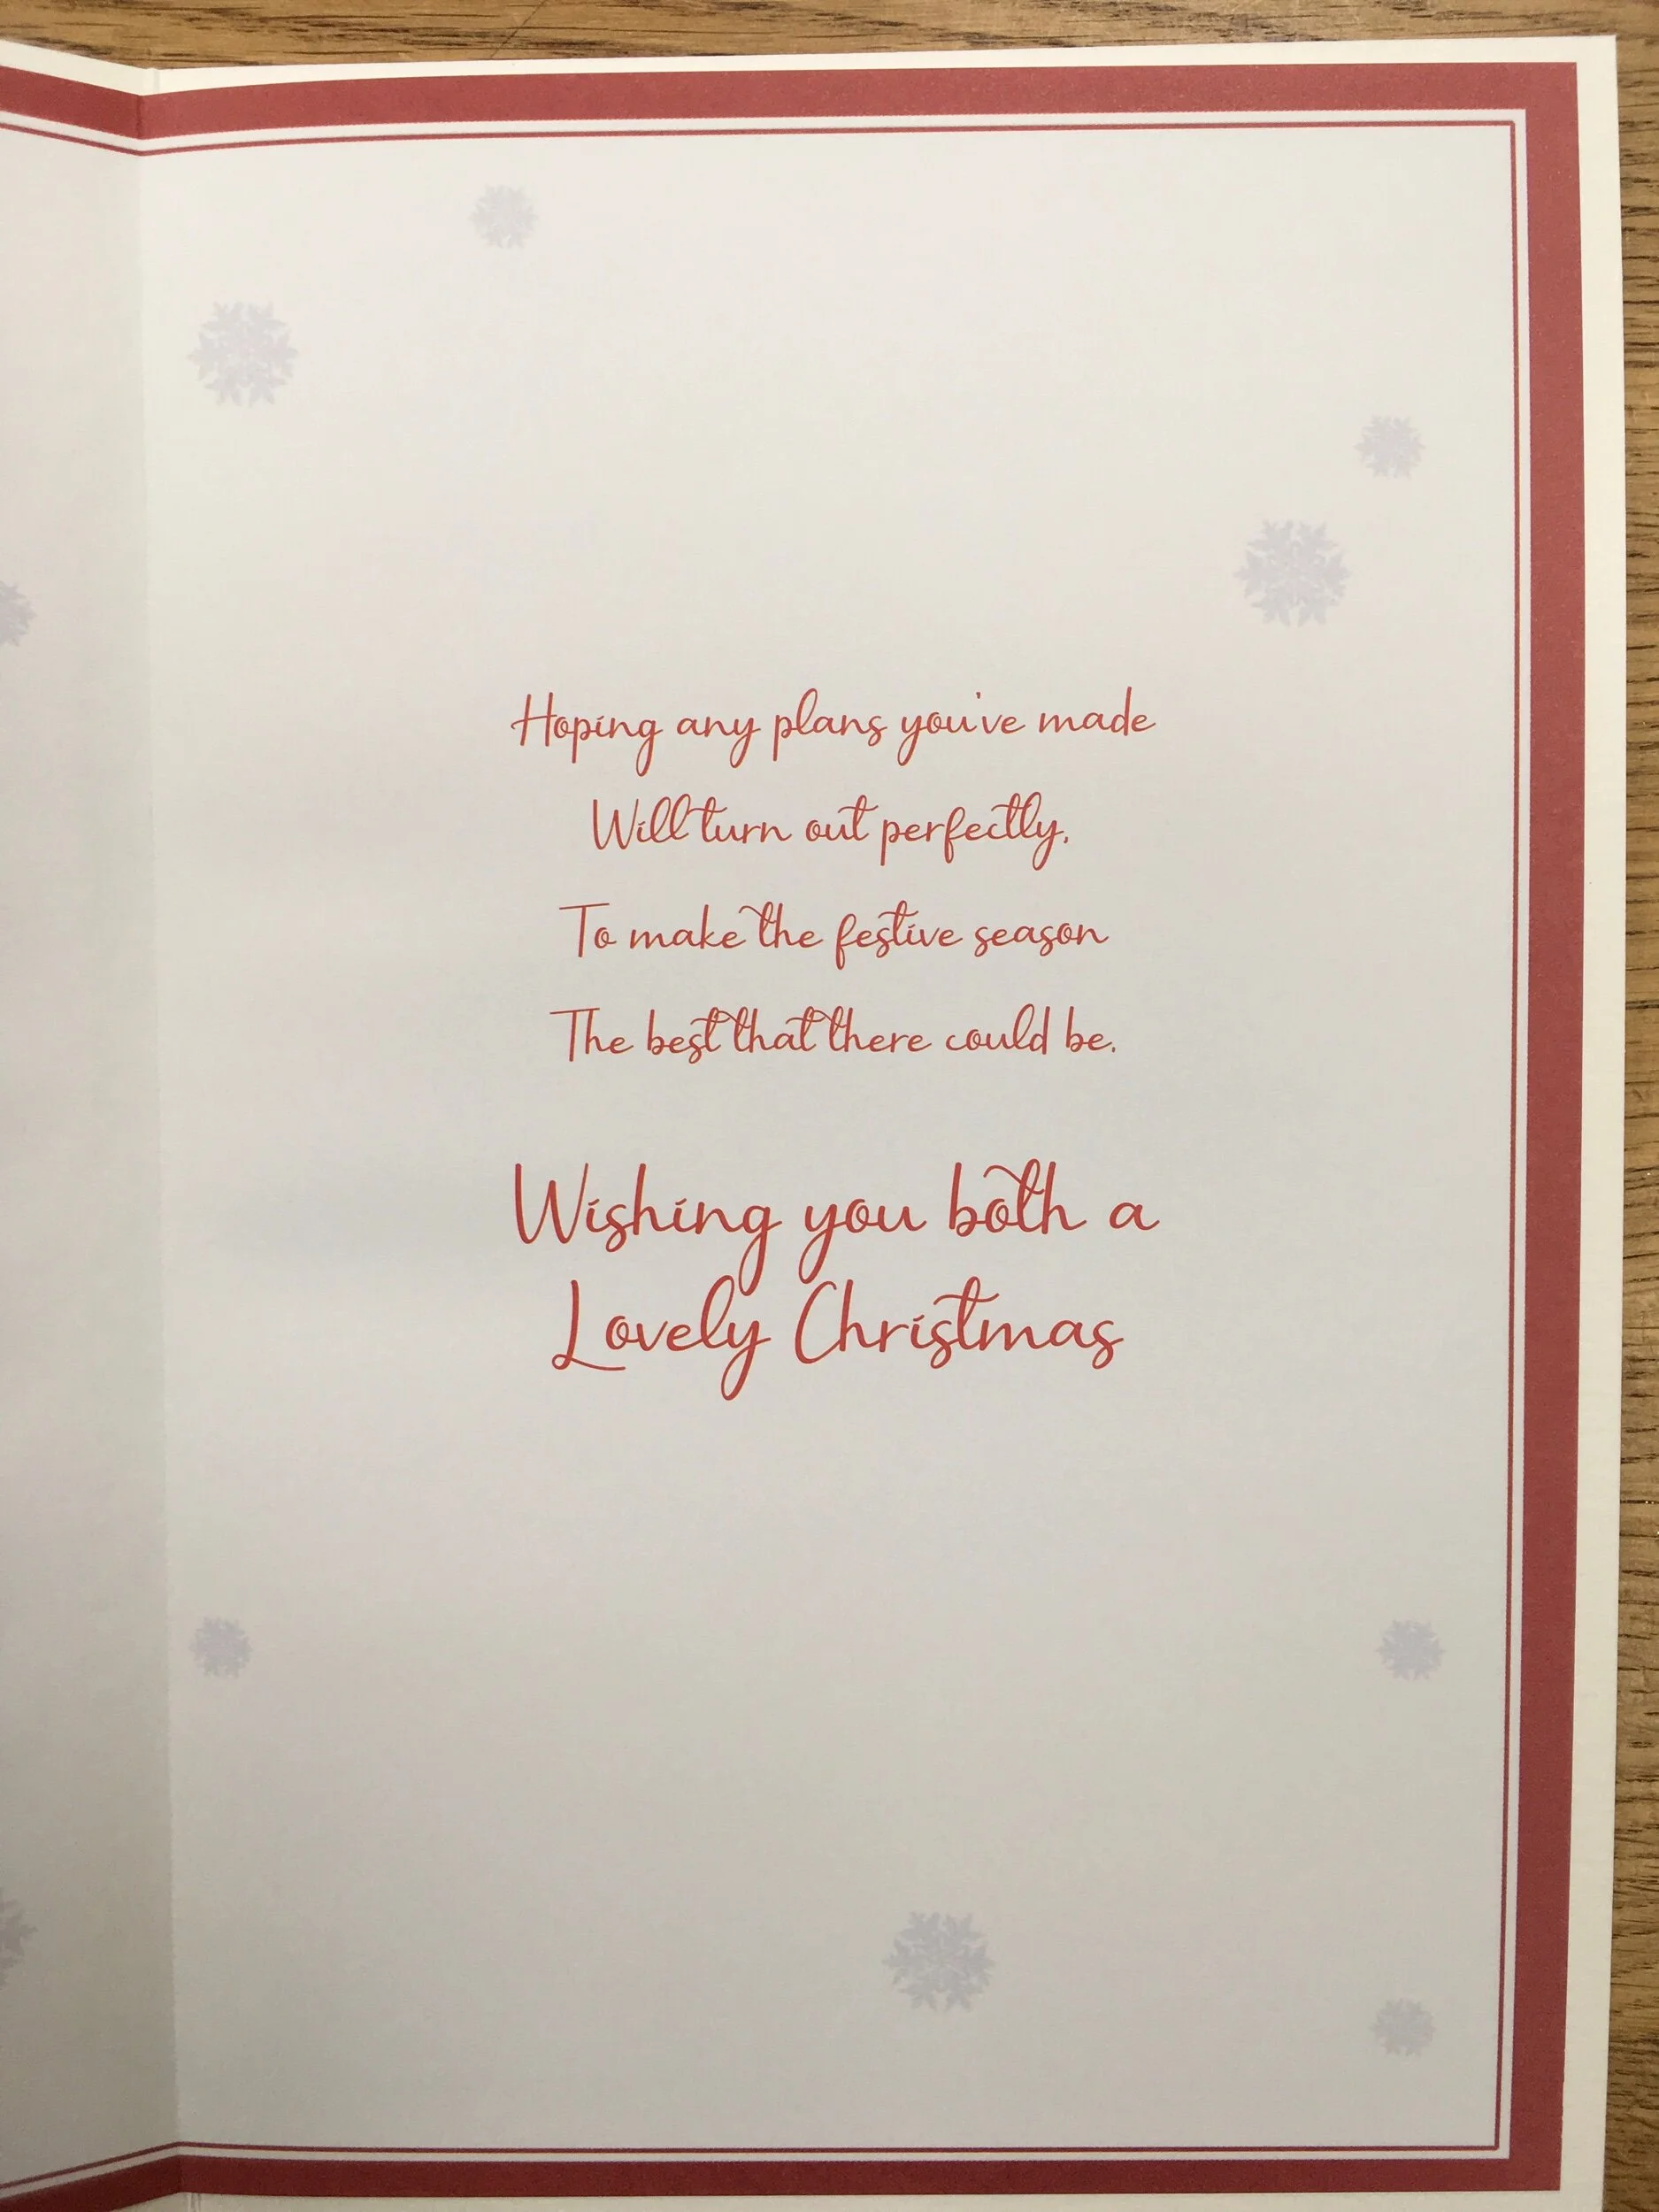 Hoping any plans you've made
Will turn out perfectly,
To make the festive season
The best that there could be.
Wishing you both a
Lovely Christmas